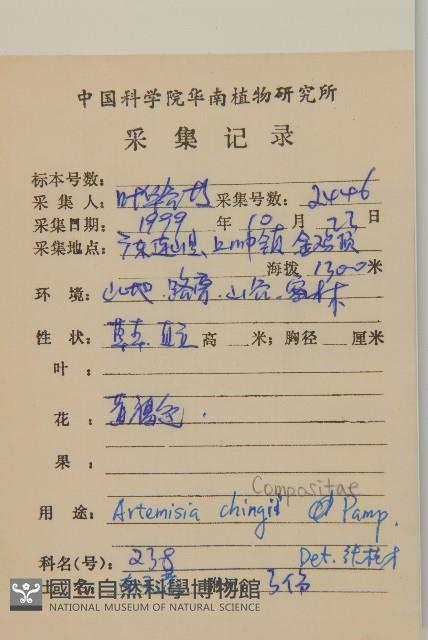 中国科学院华南植物研究所
采集记录
标本号数:
采集人: 叶华谷 采集号数: 2446
采集日期: 1999 年 10 月 23 日
采集地点: 广东连山县 上帅镇 金鸡顶
海拨 1300 米
环境: 山地.路旁.山谷.密林
性状: 草本.直立 高 米; 胸径 厘米
叶:
花: 黄褐色.
果:
Compositae
用途: Artemisia chingii Pamp.
科名(号): 238 Det. 张桂才
國立自然科學博物館
NATIONAL MUSEUM OF NATURAL SCIENCE